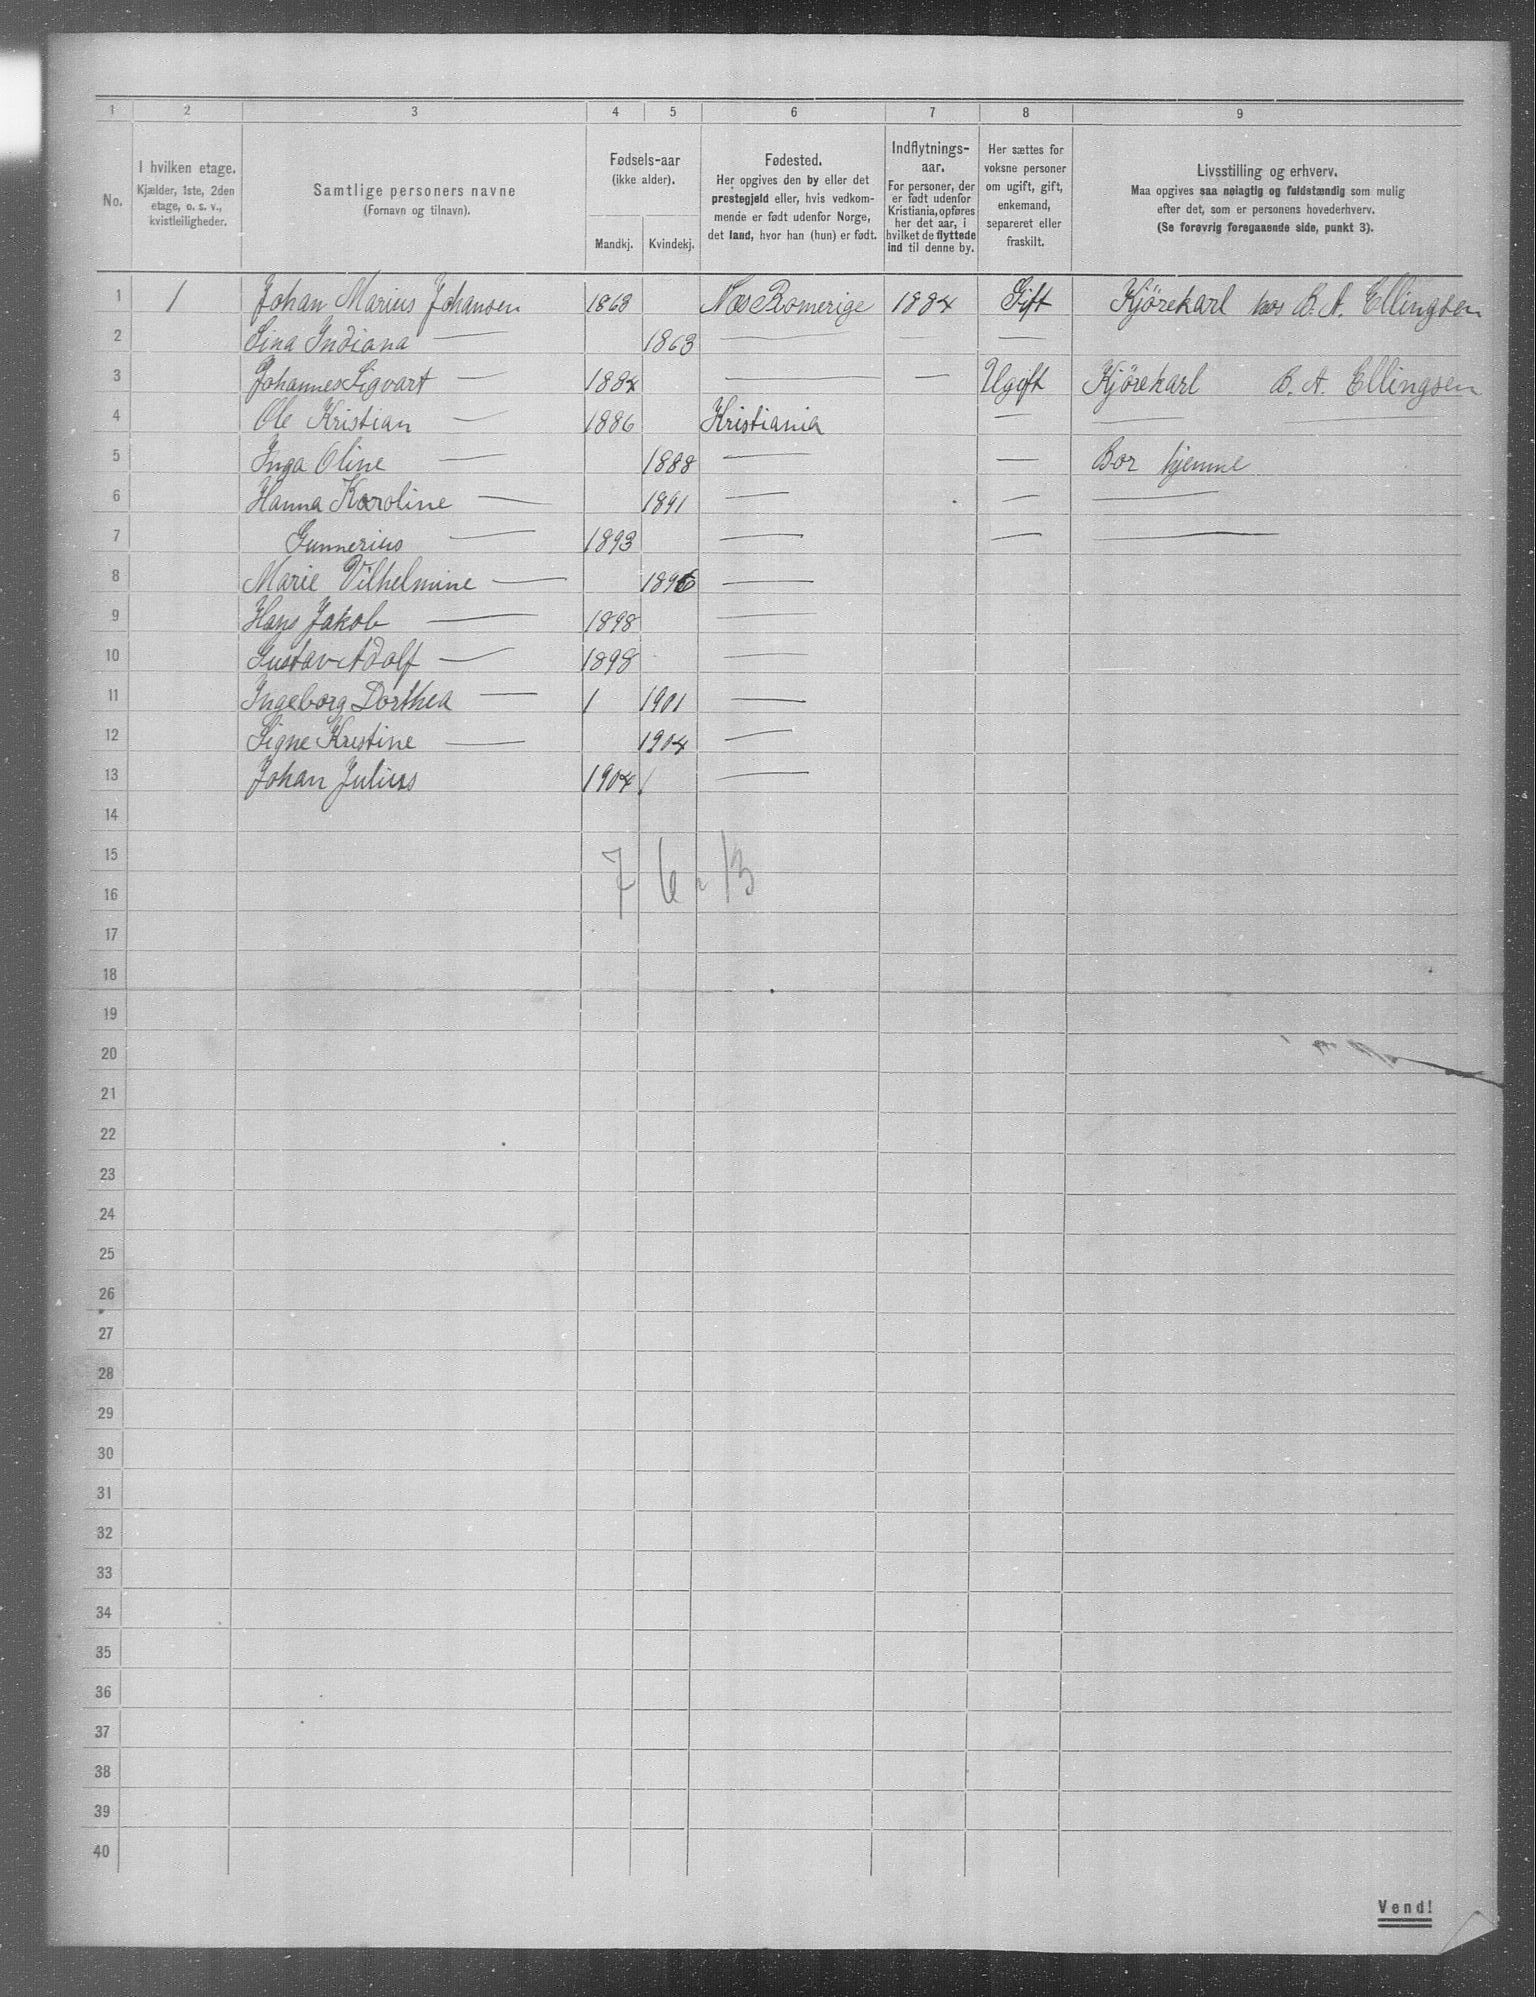 1 2 3 4 5 6 7 8 9
No.
I hvilken etage.
Kjælder, 1ste, 2den
etage, o. s. v.,
kvistleiligheder.
Samtlige personers navne
(Fornavn og tilnavn).
Fødsels-aar
(ikke alder).
Mandkj. Kvindekj.
Fødested.
Her opgives den by eller det
prestegjeld eller, hvis vedkom-
mende er født udenfor Norge,
det land, hvor han (hun) er født.
Indflytnings-
aar.
For personer, der
er født udenfor
Kristiania, opføres
her det aar, i
hvilket de flyttede
ind til denne by.
Her sættes for
voksne personer
om ugift, gift,
enkemand,
separeret eller
fraskilt.
Livsstilling og erhverv.
Maa opgives saa nøiagtig og fuldstændig som mulig
efter det, som er personens hovederhverv.
(Se forøvrig foregaaende side, punkt 3).
1 1 Johan Marius Johansen 1863 Næs Romerige 1884 Gift Kjörekarl hos B. A. Ellingsen
2 Lina Indiana — 1863 — — —
3 Johannes Sigvart — 1884 — — Ugift Kjörekarl B. A. Ellingsen
4 Ole Kristian — 1886 Kristiania — — —
5 Inga Oline — 1888 — — Bor hjemme
6 Hanna Karoline — 1891 — — —
7 Gunnerius — 1893 — — —
8 Marie Vilhelmine — 1896 —
9 Hans Jakob — 1898 —
10 Gustav Adolf — 1898 —
11 Ingeborg Dorthea — 1 1901 —
12 Signe Kristine — 1904 —
13 Johan Julius 1904 —
14
15
7 6 - 13
16
17
18
19
20
21
22
23
24
25
26
27
28
29
30
31
32
33
34
35
36
37
38
39
40
Vend!